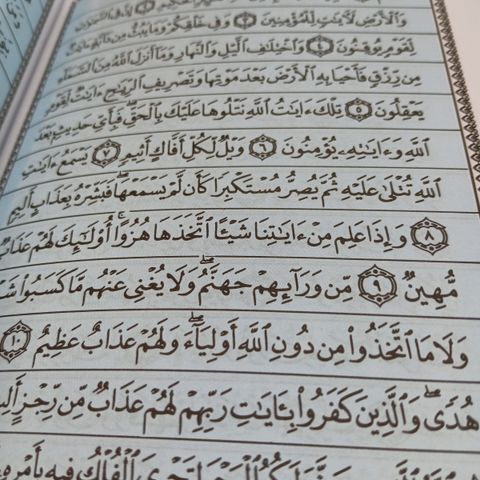 وَٱلْأَرْضِ لَءَايَٰتٍ لِّلْمُؤْمِنِينَ ٣ وَفِى خَلْقِكُمْ وَمَا يَبُثُّ مِن دَآبَّةٍ ءَايَٰتٌ
لِّقَوْمٍ يُوقِنُونَ ٤ وَٱخْتِلَٰفِ ٱلَّيْلِ وَٱلنَّهَارِ وَمَآ أَنزَلَ ٱللَّهُ مِنَ ٱلسَّمَآءِ
مِن رِّزْقٍ فَأَحْيَا بِهِ ٱلْأَرْضَ بَعْدَ مَوْتِهَا وَتَصْرِيفِ ٱلرِّيَٰحِ ءَايَٰتٌ لِّقَوْمٍ
يَعْقِلُونَ ٥ تِلْكَ ءَايَٰتُ ٱللَّهِ نَتْلُوهَا عَلَيْكَ بِٱلْحَقِّ ۖ فَبِأَىِّ حَدِيثٍۭ بَعْدَ
ٱللَّهِ وَءَايَٰتِهِۦ يُؤْمِنُونَ ٦ وَيْلٌ لِّكُلِّ أَفَّاكٍ أَثِيمٍ ٧ يَسْمَعُ ءَايَٰتِ
ٱللَّهِ تُتْلَىٰ عَلَيْهِ ثُمَّ يُصِرُّ مُسْتَكْبِرًا كَأَن لَّمْ يَسْمَعْهَا ۖ فَبَشِّرْهُ بِعَذَابٍ أَلِيمٍ
٨ وَإِذَا عَلِمَ مِنْ ءَايَٰتِنَا شَيْـًٔا ٱتَّخَذَهَا هُزُوًا ۚ أُو۟لَٰٓئِكَ لَهُمْ عَذَابٌ
مُّهِينٌ ٩ مِّن وَرَآئِهِمْ جَهَنَّمُ ۖ وَلَا يُغْنِى عَنْهُم مَّا كَسَبُوا۟
وَلَا مَا ٱتَّخَذُوا۟ مِن دُونِ ٱللَّهِ أَوْلِيَآءَ ۖ وَلَهُمْ عَذَابٌ عَظِيمٌ ١٠
هُدًى ۖ وَٱلَّذِينَ كَفَرُوا۟ بِـَٔايَٰتِ رَبِّهِمْ لَهُمْ عَذَابٌ مِّن رِّجْزٍ
لَكُمُ ٱلْبَحْرَ لِتَجْرِىَ ٱلْفُلْكُ فِيهِ بِأَمْرِهِ